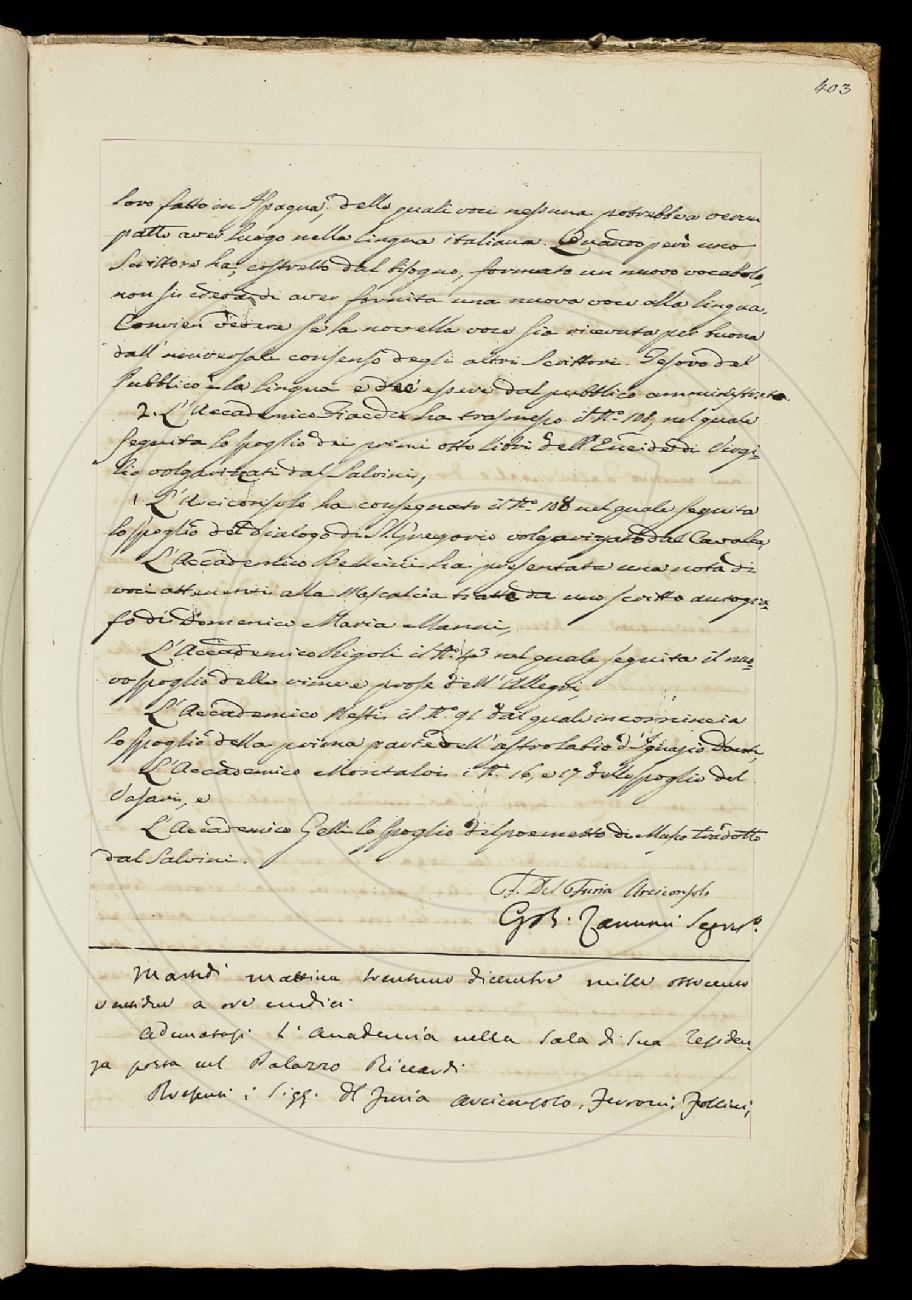 403
loro fatto in Ispagna, delle quali voci nessuna potrebbe a verun
patto aver luogo nella lingua italiana. Quando però uno
Scrittore ha, costretto dal bisogno, formato un nuovo vocabolo,
non si creda di aver fornita una nuova voce alla lingua.
Convien vedere se la novella voce sia ricevuta per buona
dall'universale consenso degli altri Scrittori. Tesoro del
Pubblico è la lingua e dee essere dal pubblico amministrato.
2. L'Accademico ha trasmesso il N.º 108, nel quale
seguita lo spoglio dei primi otto libri dell'Eneide di Virgi-
lio volgarizzati dal Salvini,
1 L'Arciconsolo ha consegnato il N.º 108 nel quale seguita
lo spoglio del Dialogo di S. Gregorio volgarizzato dal Cavalca,
L'Accademico Bencini ha presentata una nota di
voci attenenti alla Mascalcia tratte da uno scritto autogra-
fo di Domenico Maria Manni,
L'Accademico Rigoli il N.º nel quale seguita il nuo-
vo spoglio delle rime e prose dell'Allegri,
L'Accademico Nesti il N.º 91 dal quale incomincia
lo spoglio della prima parte dell'astrolabio d'Ignazio Danti,
L'Accademico Montalvi i N.i 16, e 17 dello spoglio del
Vasari, e
L'Accademico Gelli lo spoglio del poemetto di Museo tradotto
dal Salvini.
F. Del Furia Arciconsolo
G. B. Zannoni Segret.º
Martedì mattina trentuno dicembre mille ottocento
ventidue a ore undici
Adunatasi l'Accademia nella Sala di sua residen-
za posta nel Palazzo Riccardi
Presenti i Sigg. Del Furia Arciconsolo, Ferroni, Follini,